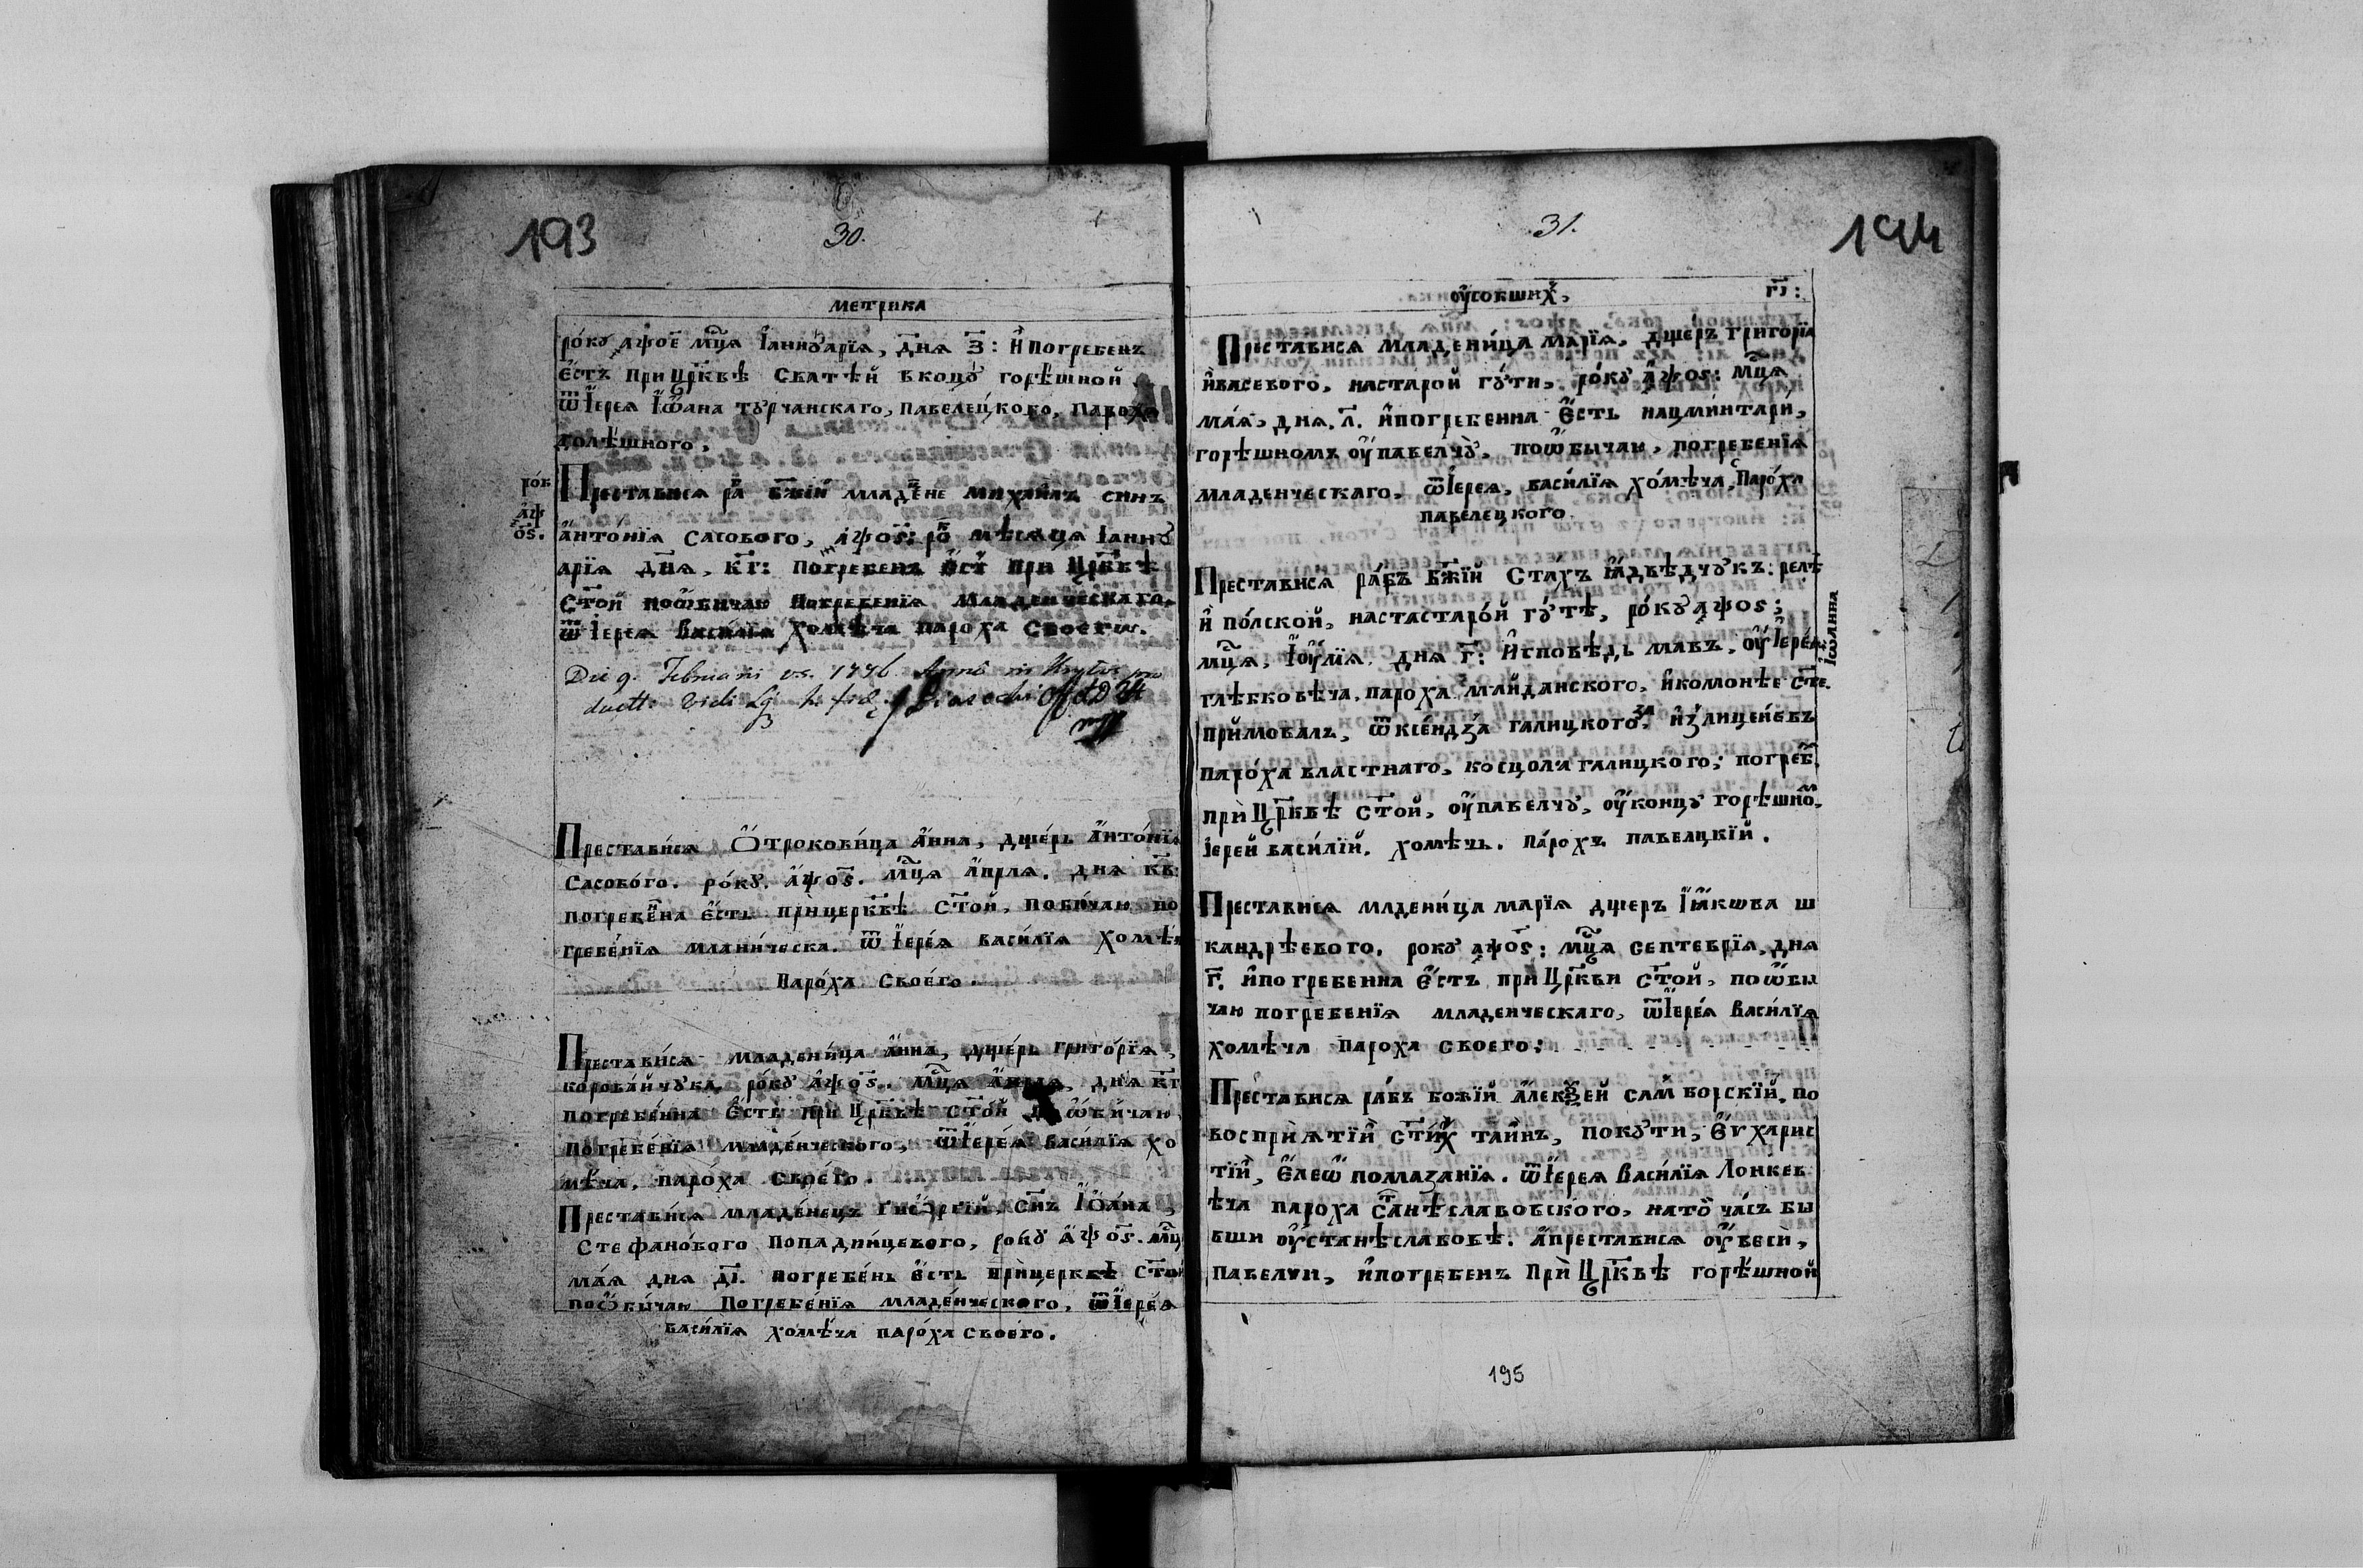 193
30.
метрика
ро́кꙋ аѱое мⷭ҇ца Іаннꙋарїа, дня з҃: И погребенъ
е҆стъ при Цр҃квѣ Сватѣй вконцꙋ горѣшной
ѿІерея Іѡана тꙋрчанскаго, павелецкого, пароха
долѣшного,
рок
Преставися ра бж҃ій младене михаилъ синъ
аѱ
о҃ѕ.
а҆нто́нїя сасового, аѱо҃ѕ: ро мѣсяця Іаннꙋ
арїя дня, к҃г: погребенъ ест при Цр҃квѣ
Ст҃ой поѡбичаю погребенїя младенческаго.
ѿІерея василїя хомѣча пароха своегѡ.
Die 9. Februarii v.s. 1776
duett: vidi
Престави́ся Ѻ҆трокови́ца а҆нна, дщерь а҆нто́нїя
сасово́го. ро́кꙋ. аѱо҃ѕ. мц҃я а҆прля. дня к҃в:
погребена есть прицерк҃вѣ ст҃ой, побичаю по
гребе́нїя мланическа. ѿІере́я васи́лїя хомѣч
Паро́ха своего.
Престави́ся младени́ца а҆нна, дще́рь григо́рїя,
корова́йчꙋка, ро́кꙋ аѱо҃ѕ. мц҃я дня к҃г
погребе́нна е҆сть при Цр҃квѣ ст҃ой ѡ҆бичаю
погребе́нїя младе́нческого, ѿІере́я васи́лїя хо
мѣча, паро́ха своего.
Престави́ся младе́нецъ сн҃ъ Іѻа́на,
Стефано́вого Попадинцевого, рокꙋ аѱо҃ѕ. мц҃
мая дня д҃і. погребе́нъ е҆сть прицерквѣ ст҃ой
поѻби́чаю Погребе́нїя младе́нческого, ѿІере́я
васи́лїя хомѣча паро́ха своего.
194
31.
ѹсопшихъ, г҃і:
Преставися младени́ца марїя, дщеръ григорїя
и҆васевого, настарой гꙋти, рокꙋ аѱоѕ: мц҃я
мая, дня, л҃. и҆погребенна е҆сть нацминтари,
горѣшномъ ѹпавелчꙋ, поѡбычаю, погребенїя
младенческаго, ѿІерея, васи́лїя хо́мѣча, Паро́ха
павелецкого.
Преставися ра́бъ бж҃їй Ста́хъ релѣ
и҆ по́лской, настастарой гꙋтѣ, рокꙋ аѱоѕ;
мц҃я, Іѹлїя дня г҃: исповѣдь мавъ, ѹІере́я
Іѡанна
глѣбковѣча, пароха майданского, икомонѣе ст҃е.
прийм овалъ, ѿксендза галицкого, за и҆злицене́въ
паро́ха властнаго, косцола галицкого; погреб.
при Цр҃квѣ ст҃ой, ѹпавелчꙋ, ѹконцꙋ горѣшно,
Іерей васи́лїй, хомѣчь. па́рохъ павелцкїй.
Преставися младени́ца марїя дщеръ Іꙗкѡва ш
кандрѣевого, рокꙋ аѱо҃ѕ: мц҃я септеврїя, дня
г҃. и҆погребенна е҆стъ при Цр҃кви ст҃ой, поѡбы
чаю погребенїя младенческаго, ѿІере́я васи́лїя
хомѣча пароха своего:
Преставися рабъ божїй а҆леѯей самборскїй, по
восприятїй ст҃и́хъ таинъ, покꙋти, еѵхарис
тїй, е҆леѡпомазанїя. ѿІерея василїя Лонкев
ѣча пароха ст҃анѣславовского, нато часъ бы
вши ѹстанѣславовѣ. а҆преставися ѹвеси,
павелчи, и҆погребенъ при Цр҃квѣ горѣшной
195